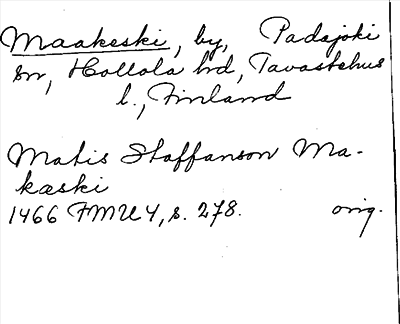 Maakeski, by, Padajoki
sn, Hollola hd, Tavastehus
l., Finland
Matis Staffanson Ma-
kaski
1466 FMU 4, s. 278. orig.